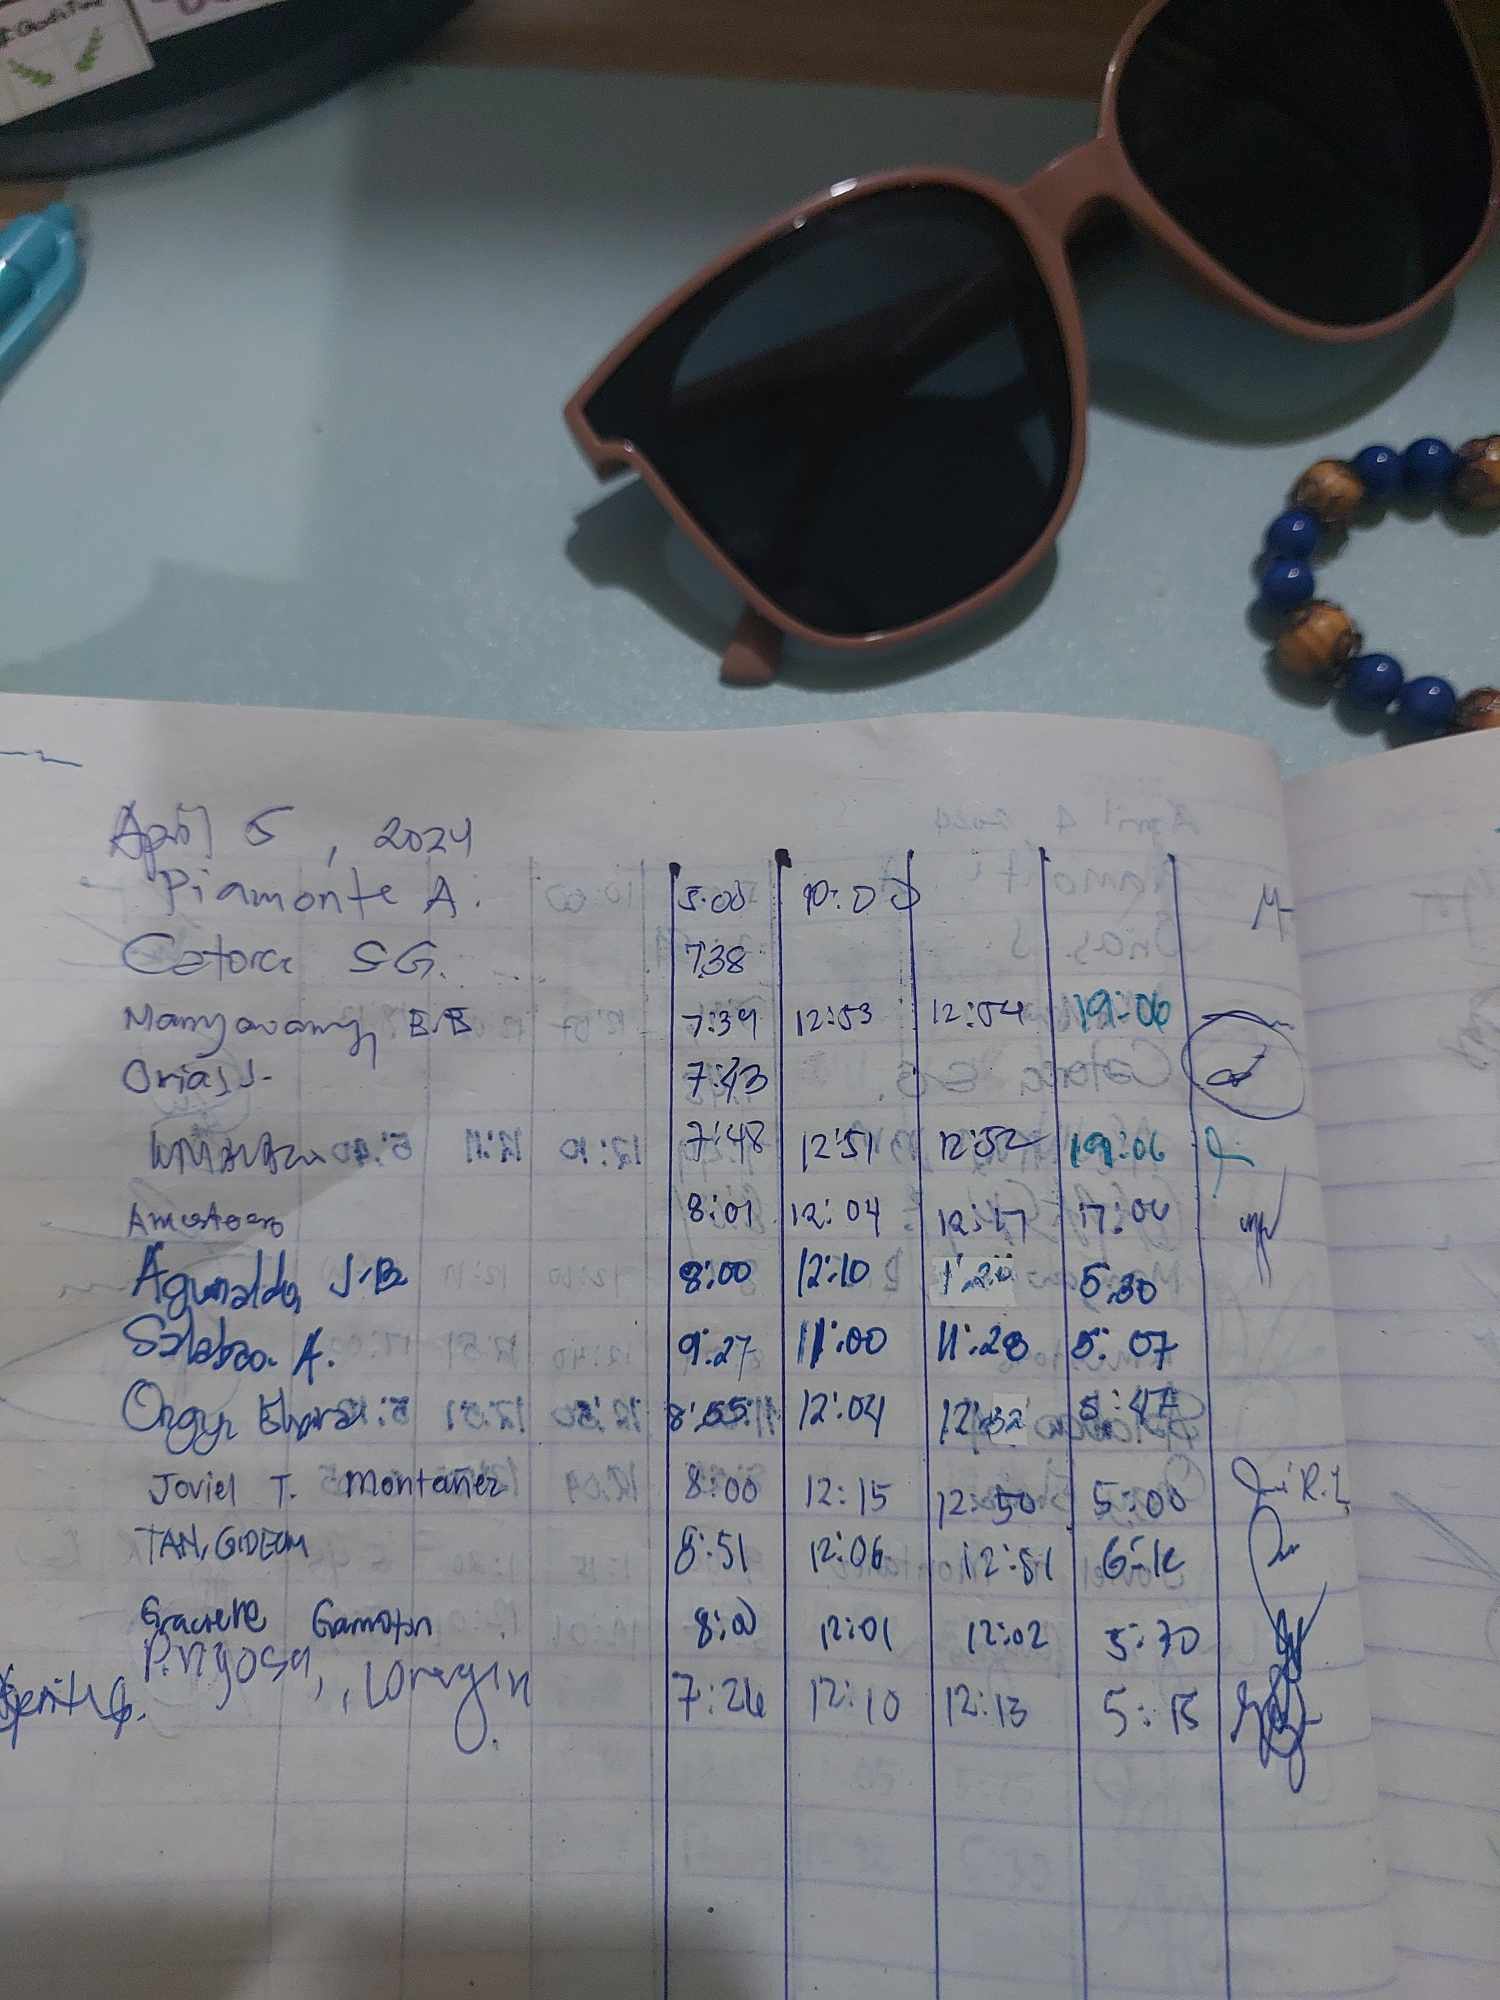 April 5, 2024
Piamonte A. 5:00 10:00
Catora SG. 7:38
Mangavang, B.B 7:39 12:53 12:54 19:06
Orias J. 7:43
7:48 12:51 12:52 19:06
8:01 12:04 12:17
Agunaldo, J.B 8:00 12:10 1:20 5:30
Salabao. A. 9:27 11:00 11:28 5:07
8:55 12:04 12:32 5:47
Joviel T. Montañez 8:00 12:15 12:50 5:00
TAN, GIDEON 8:51 12:06 12:51
Gracielle Gamotin 8:00 12:01 12:02 5:30
Pinyosa, Loregin 7:26 12:10 12:13 5:15